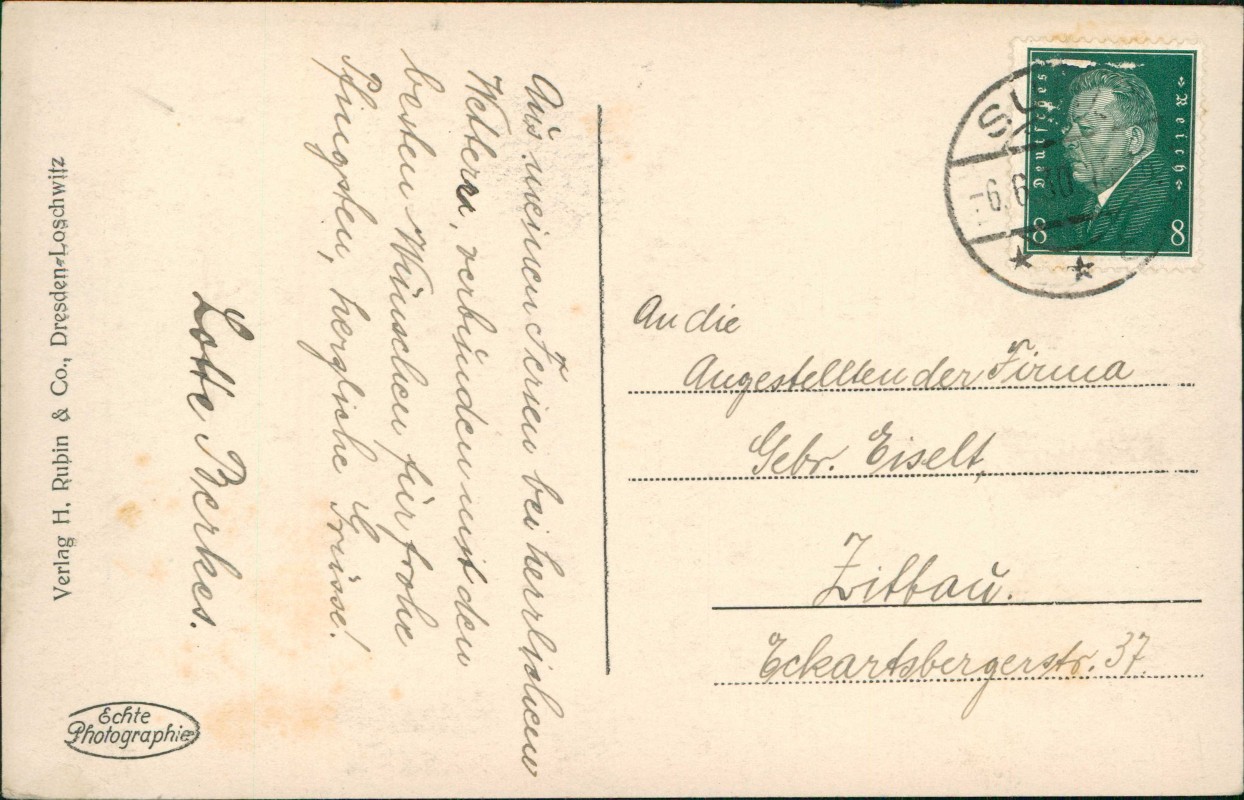 Aus meinen Ferien bei herrlichem
Wetter, verbunden mit den
besten Wünschen für frohe
Pfingsten, herzliche Grüsse!
Lotte Berkes.
An die
Angestellten der Firma
Gebr. Eiselt,
Zittau.
Eckartsbergerstr. 37.
Deutsches
Reich
8
8
Verlag H. Rubin & Co., Dresden-Loschwitz
Echte
Photographie